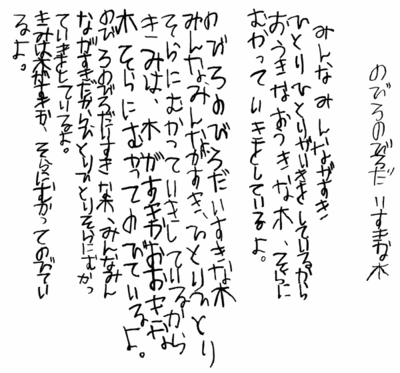 のびろのびろだいすきな木
みんなみんながすき
ひとりひとりがいきをしているから
おうきなおうきな木、そらに
むかっていきをしているよ。
のびろのびろだいすきな木
みんなみんながすき、ひとりひとり
そらにむかっていきしているから
きみは、木がすきがおおきな
木そらにむかってのびているよ。
のびろのびろだいすきな木、みんなみん
ながすきだからひとりひとりそらにむかっ
ていきをしているよ。
きみは木がすきか、そらにむかってのびてい
るよ。